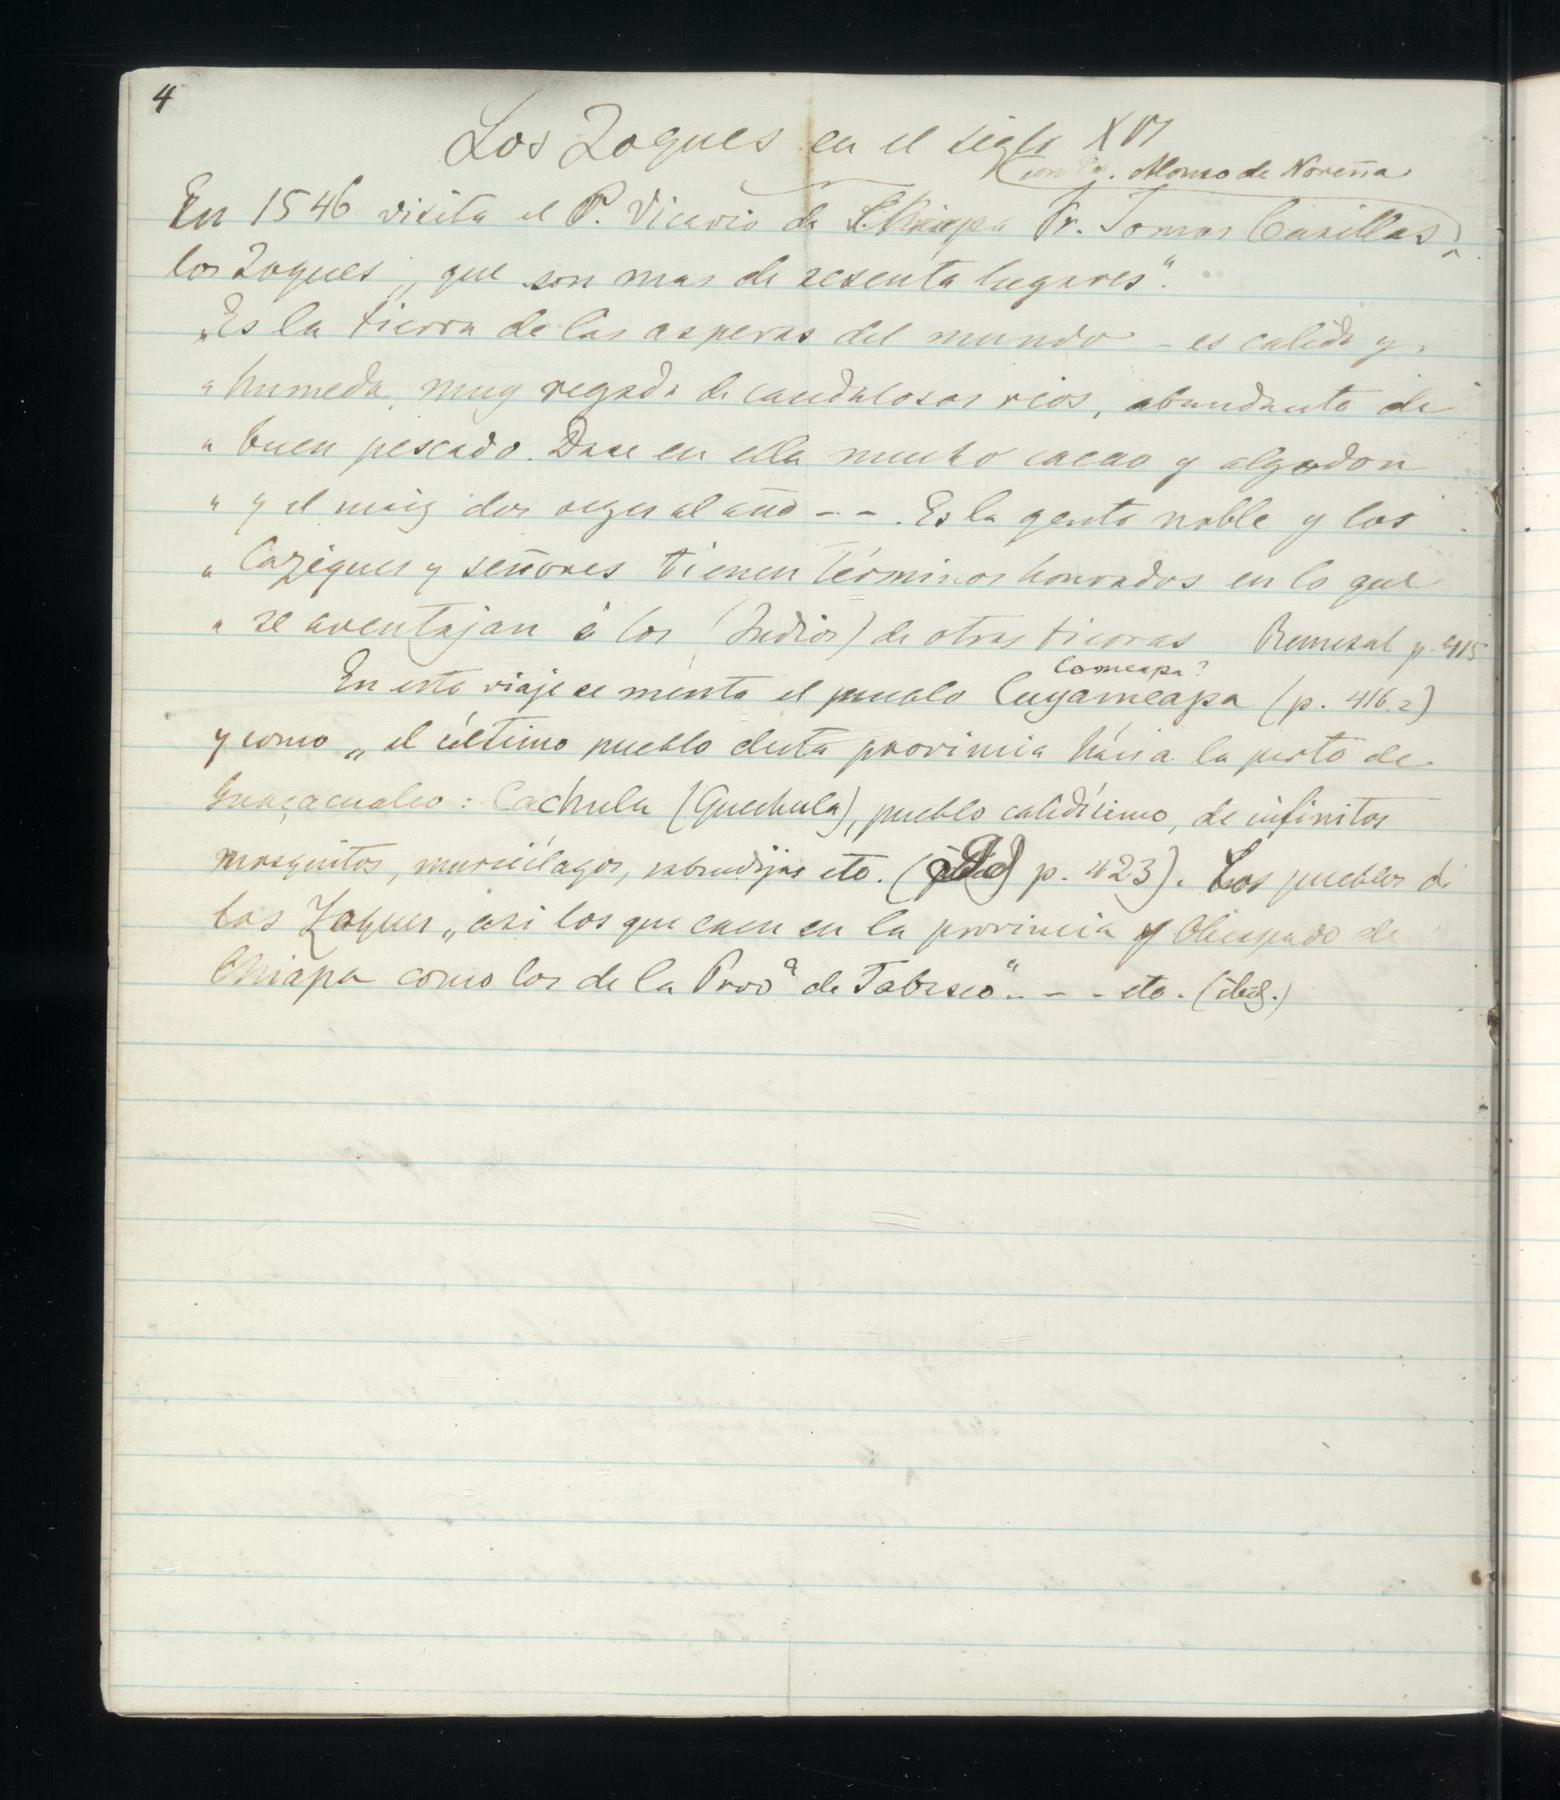 4
Los Zoques en el siglo XVI
con Fr. Alonso de Noreña
En 1546 visita el P. Vicario de Chiapa Fr. Tomas Casillas
los Zoques „ que son mas de sesenta lugares“.
„Es la tierra de las asperas del mundo – es calida y
„ humeda, muy regada de caudalosos rios, abundante de
„ buen pescado. Dase en ella mucho cacao y algodon
„ y el maiz dos vezes al año - - . Es la gente noble y los
„ Caziques y señores tienen términos honrados en lo que
„ se aventajan á los (Indios) de otras tierras Remesal p. 415
Comeapa?
En este viaje se mienta el pueblo Cuyameapa (p. 416.2)
y como „ el último pueblo desta provincia hácia la parte de
Guaçacualco : Cachula (Quechula), pueblo calidísimo, de infinitos
mosquitos, murciélagos, sabandijas etc. ( p. 423). Los pueblos de
los Zoques „ asi los que caen en la provincia y Obispado de
Chiapa como los de la Provᵃ de Tabasco“ - - - etc. (ibid.)